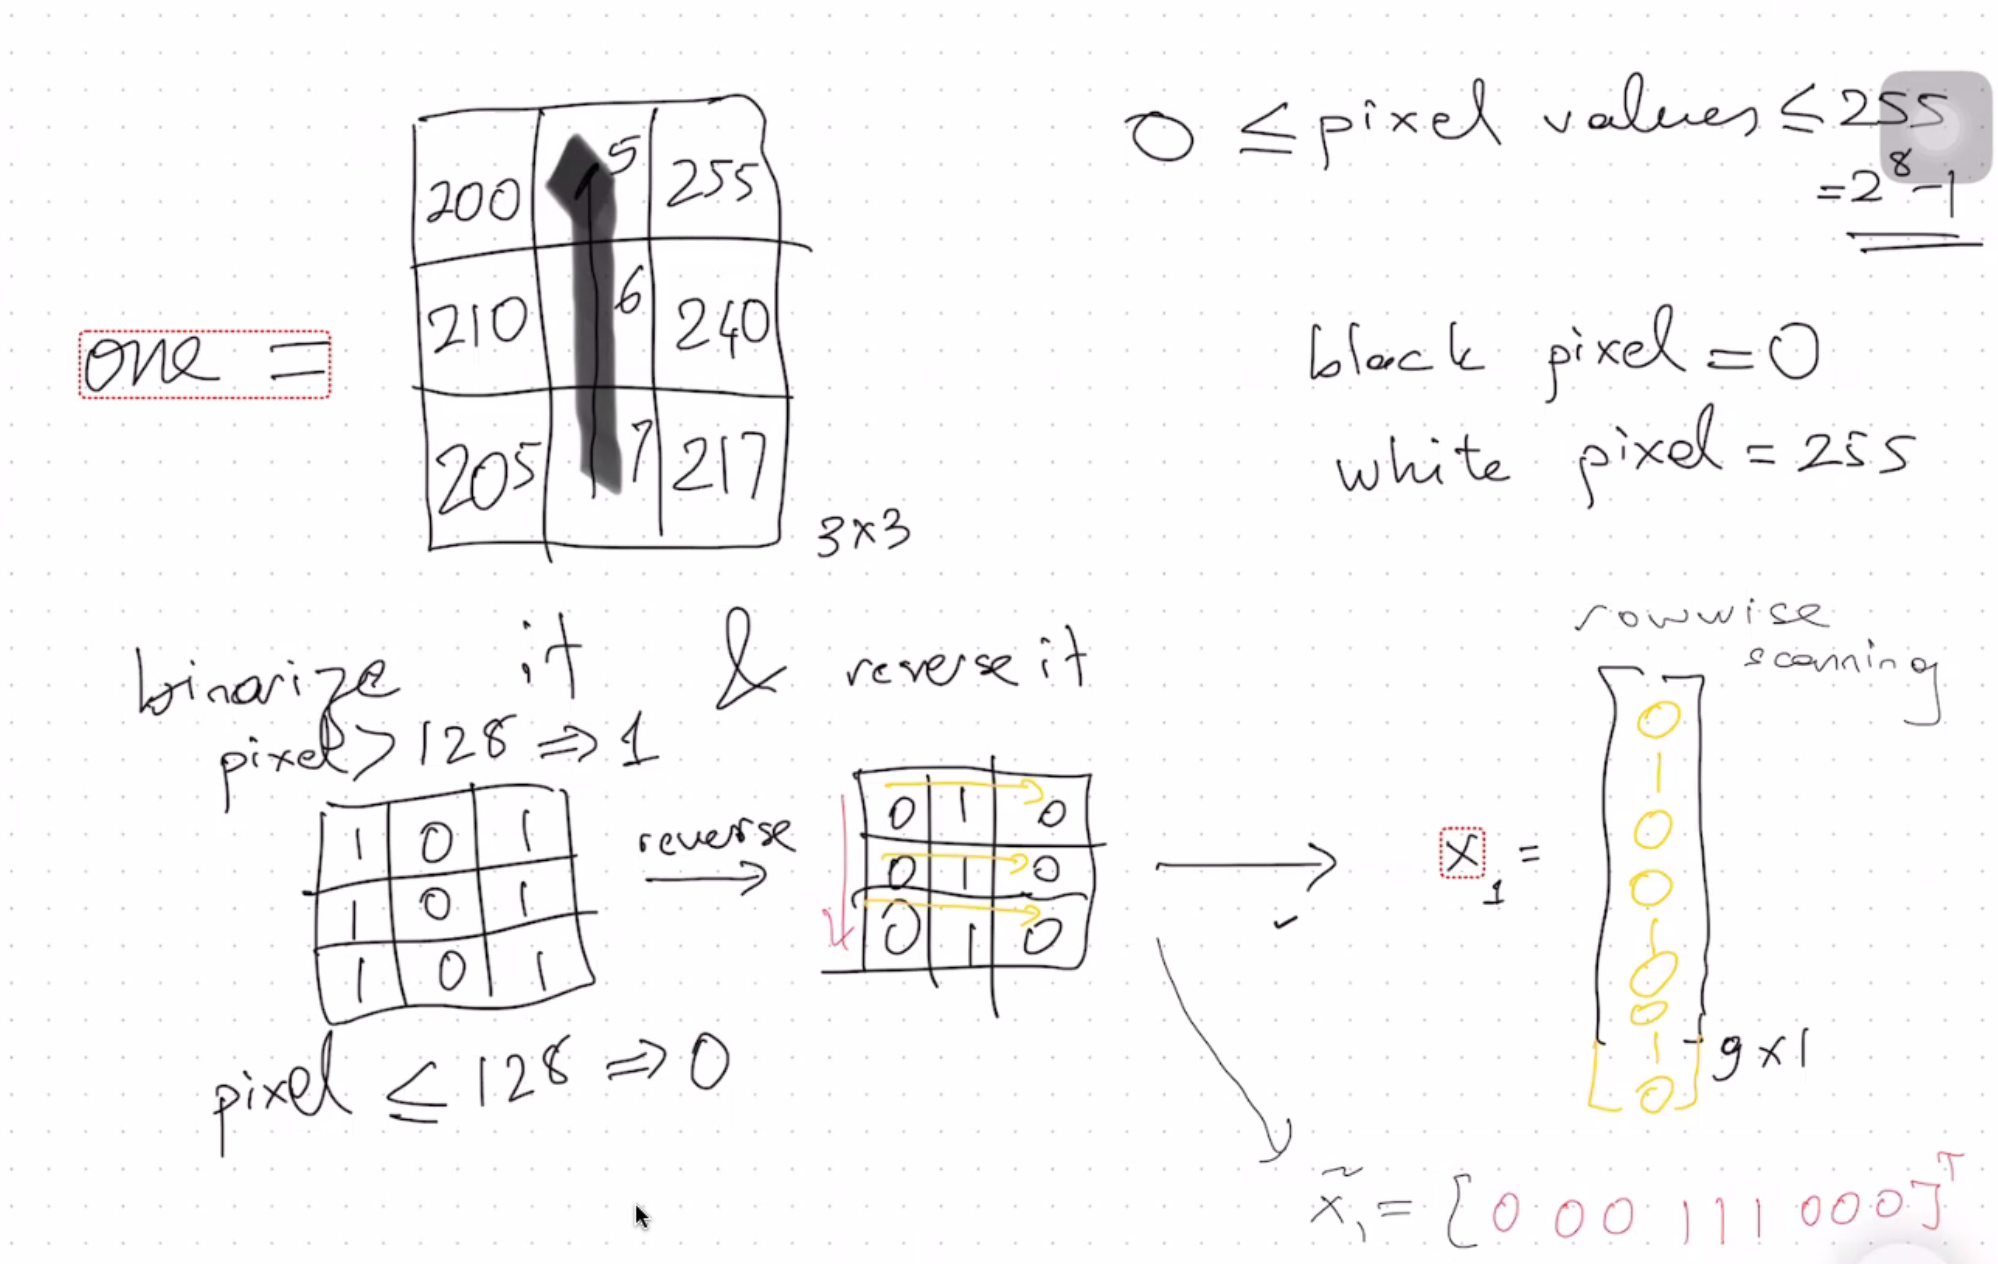 0 ≤ pixel values ≤ 255
= 2⁸-1
200 5 255
210 6 240
205 7 217
3x3
one =
black pixel = 0
white pixel = 255
binarize it & reverse it
pixel > 128 ⇒ 1
1 0 1
1 0 1
1 0 1
pixel ≤ 128 ⇒ 0
reverse
0 1 0
0 1 0
0 1 0
rowwise
scanning
x₁ =
0
1
0
0
1
0
0
1
0
9x1
x̃₁ = [0 0 0 1 1 1 0 0 0]ᵀ